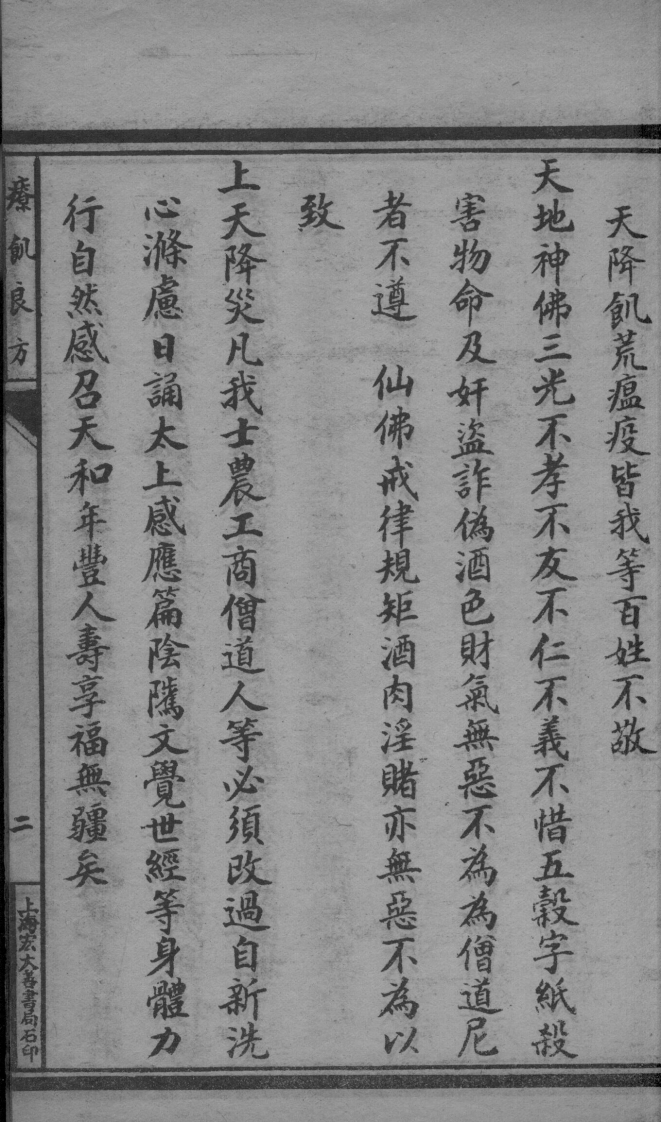 天降飢荒瘟疫皆我等百姓不敬
天地神佛三光不孝不友不仁不義不惜五穀字紙殺
害物命及奸盜詐偽酒色財氣無惡不為為僧道尼
者不遵　仙佛戒律規矩酒肉淫賭亦無惡不為以
致
上天降災凡我士農工商僧道人等必須改過自新洗
心滌慮日誦太上感應篇陰隲文覺世經等身體力
行自然感召天和年豐人壽享福無疆矣
療飢良方
二
上海宏大善書局石印